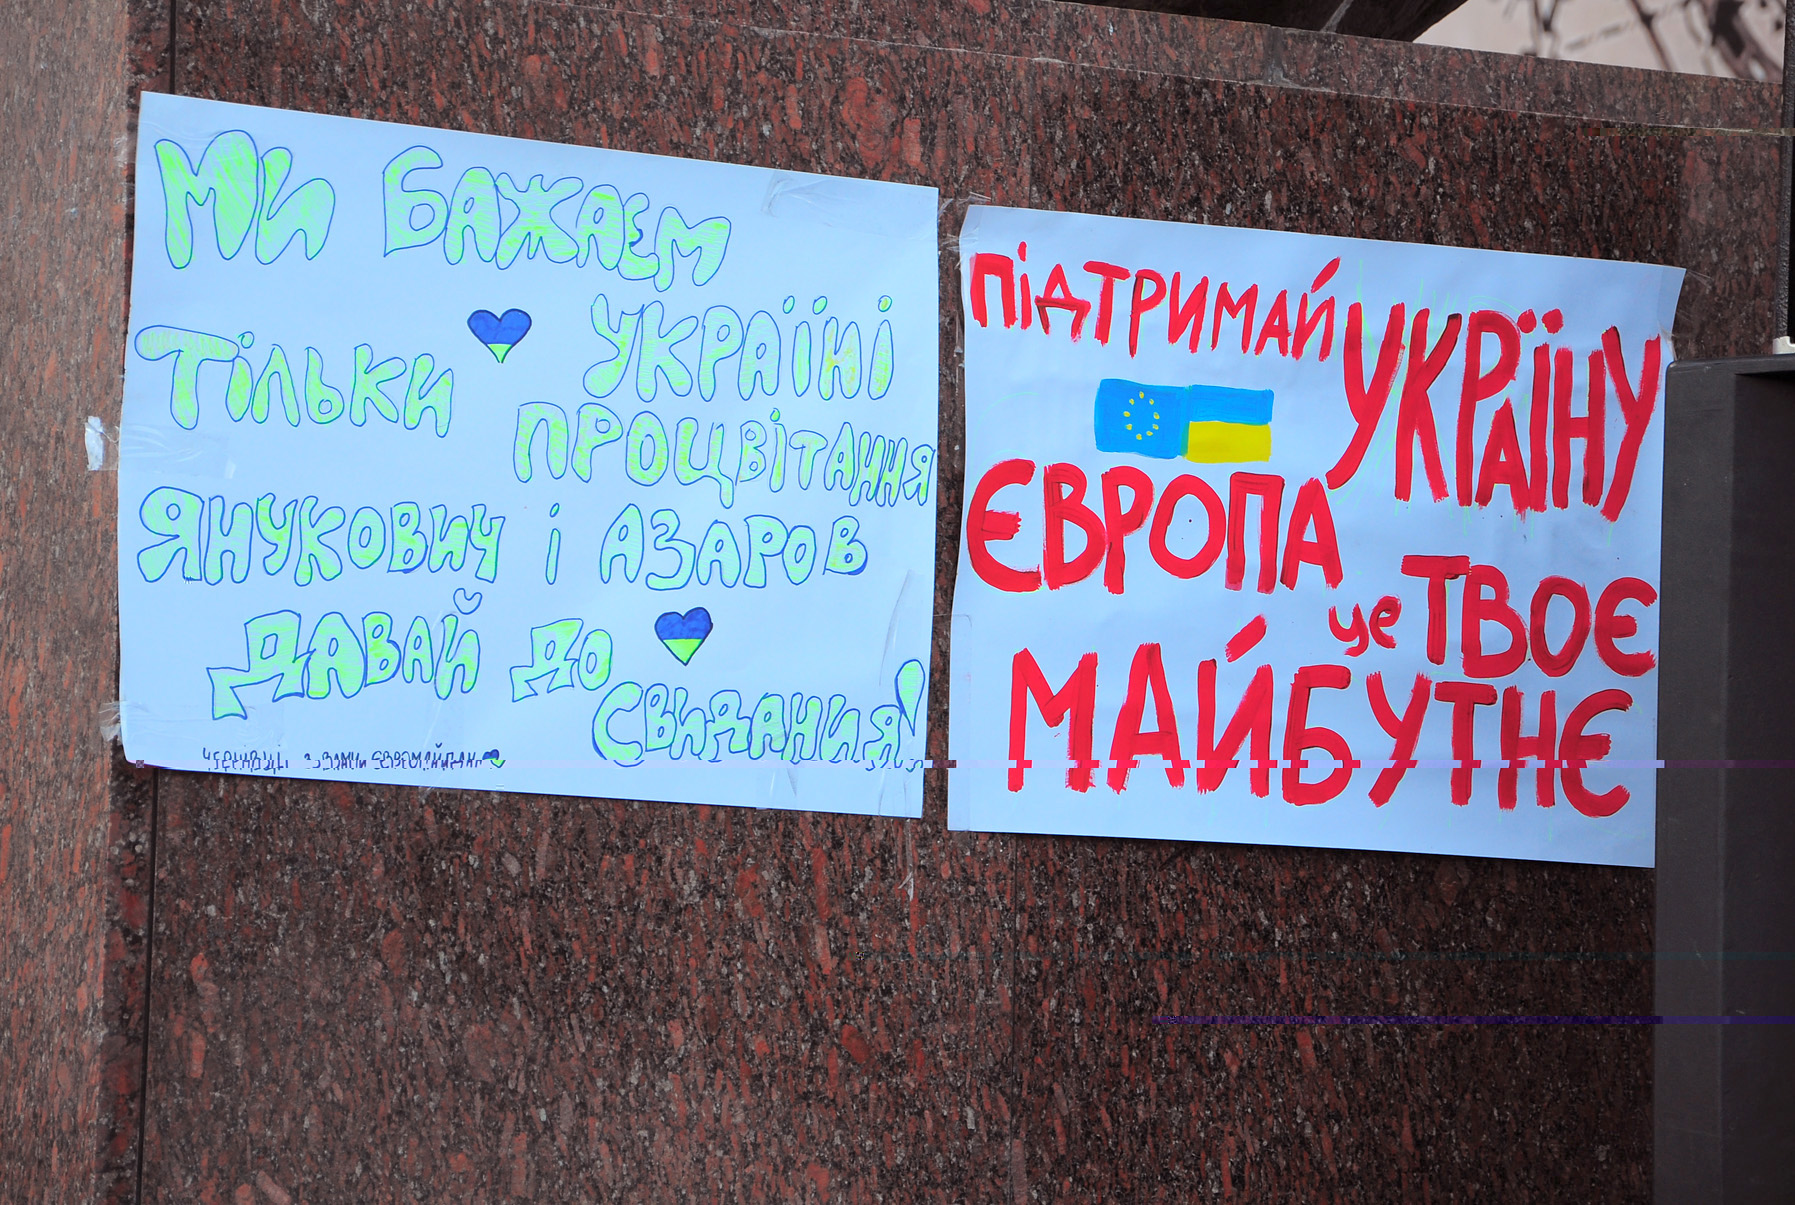 Ми бажаєм
тільки Україні
процвітання
Янукович і Азаров
давай до
свидания!
Чернівці з вами Євромайдан
Підтримай
Україну
Європа
це твоє
майбутнє